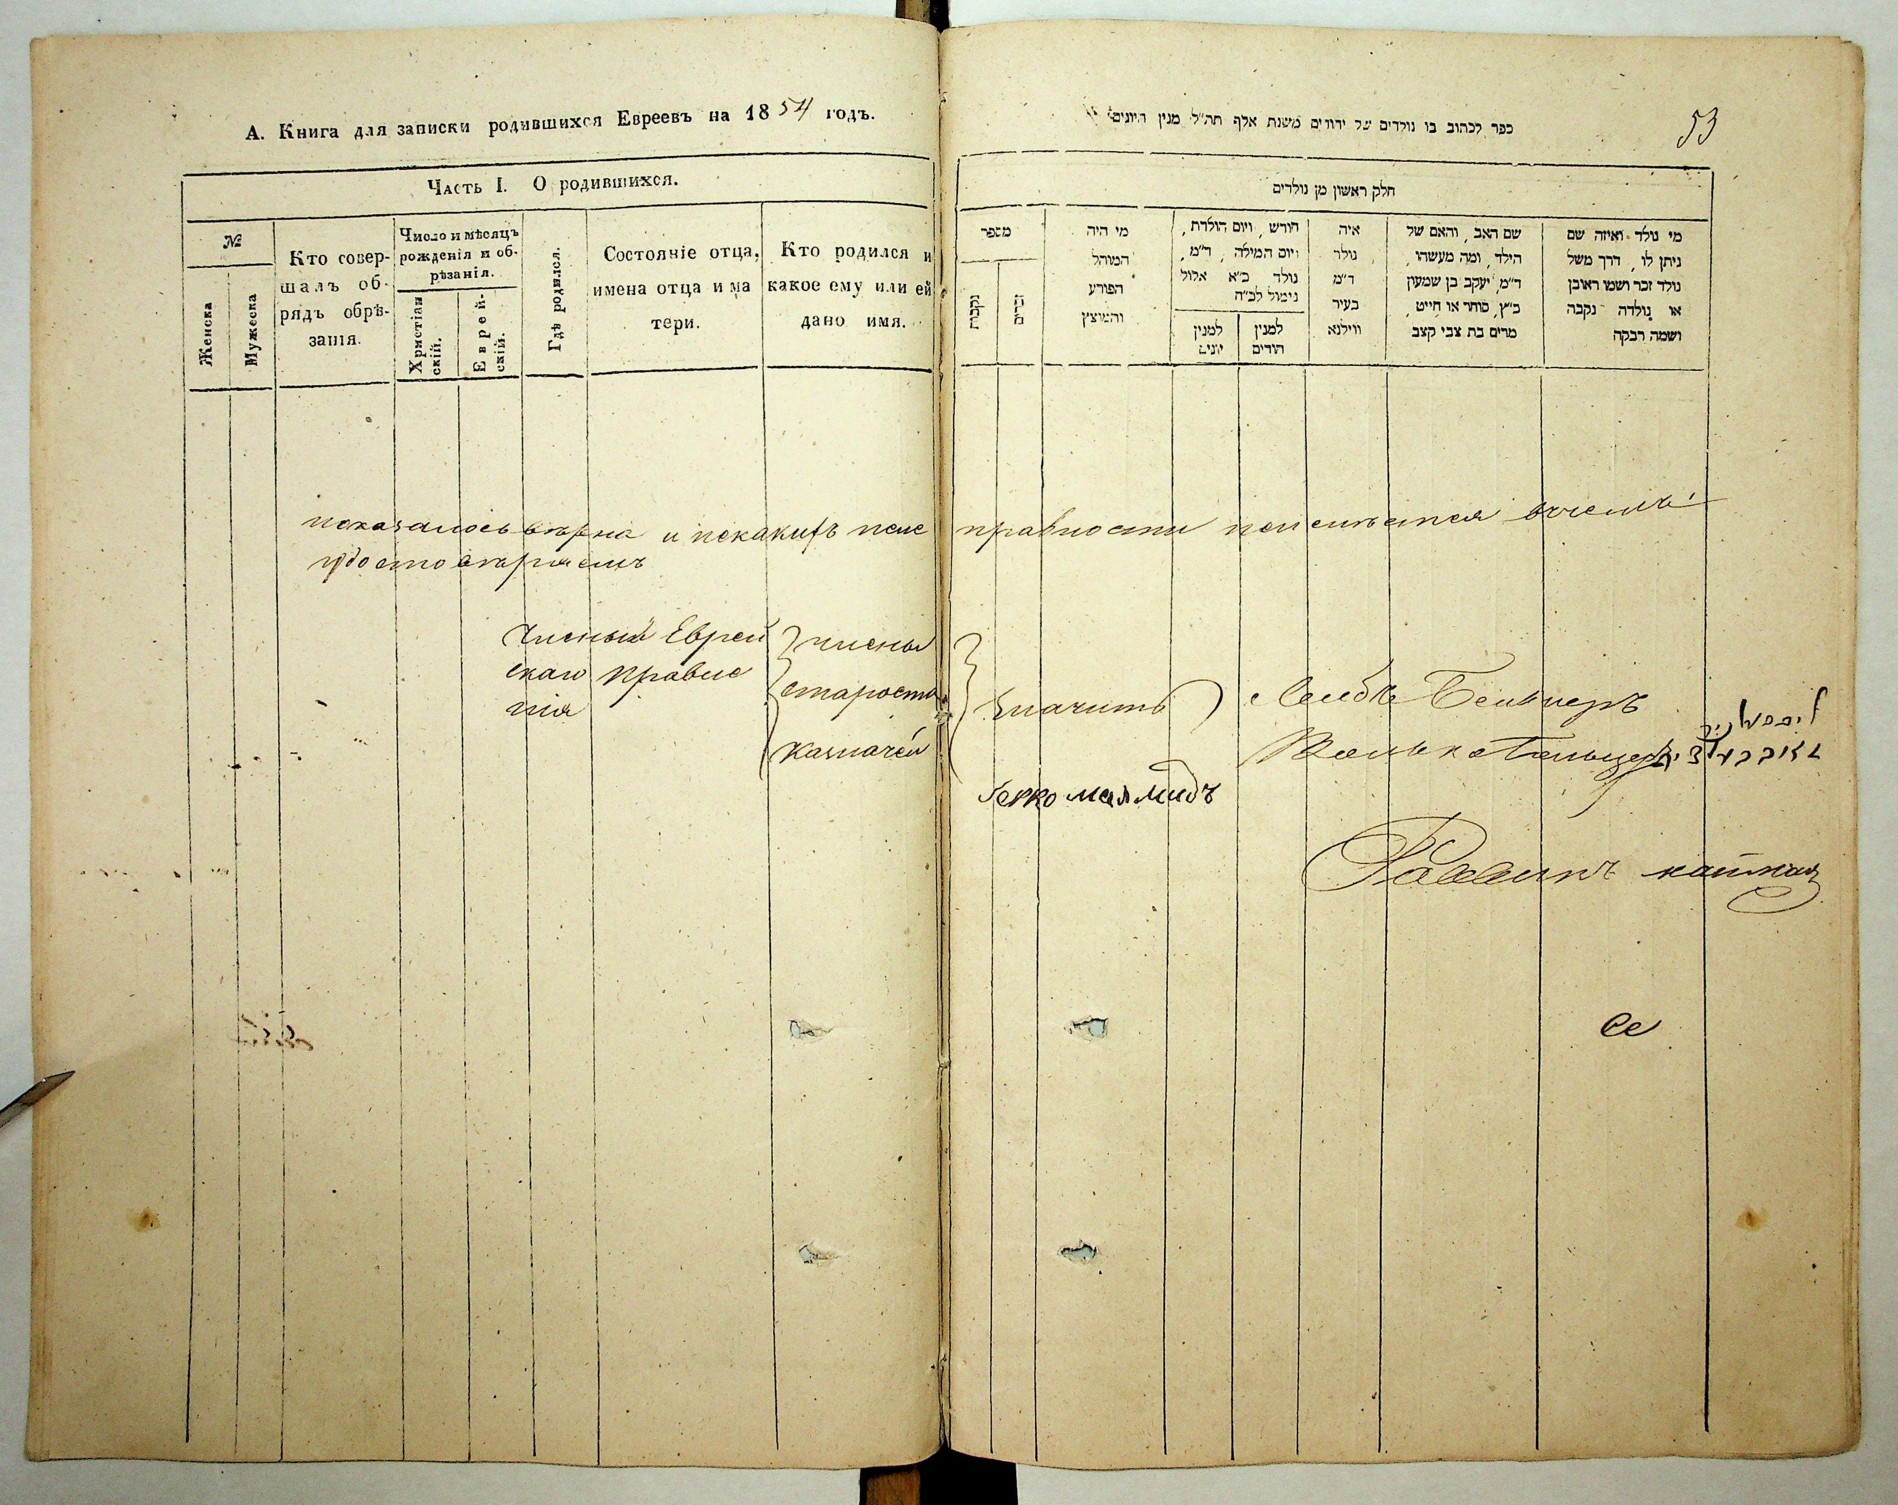 А. Книга для записки родившихся Евреевъ на 1854 годъ.
Часть I. О родившихся.
№
Женска
Мужеска
Кто совер-
шалъ об-
рядъ обрѣ-
занія.
Число и мѣсяцъ
рожденія и об-
рѣзанія.
Христіан
скій.
Еврей-
скій.
Гдѣ родился.
Состояніе отца,
имена отца и ма
тери.
Кто родился и
какое ему или ей
дано имя.
53
ספר לכתוב בו נולדים של יהודים משנת אלף תה"ל מנין היונים
חלק ראשון מן נולדים
מספר
נקבות
זכרים
מי היה
המוהל
הפורע
והמוצץ
חודש, ויום הולדת,
ויום המילה, ד"מ,
נולד כ"א אלול
נימול לכ"ה
למנין
יונים
למנין
הודים
איה
נולד
ד"מ
בעיר
ווילנא
שם האב, והאם של
הילד, ומה מעשהו,
ד"מ, יעקב בן שמעון
כ"ץ, סוחר או חייט,
מרים בת צבי קצב
מי נולד ואיזה שם
ניתן לו, דרך משל
נולד זכר ושמו ראובן
או נולדה נקבה
ושמה רבקה
показалось вѣрна и некакихъ неис правности неимѣется вчемъ
удостовѣряемъ
Члены Еврей
скаго правле
нія
члены
староста
Казначей
Значитъ
Лейбъ
Герко меламедъ
Раввинъ